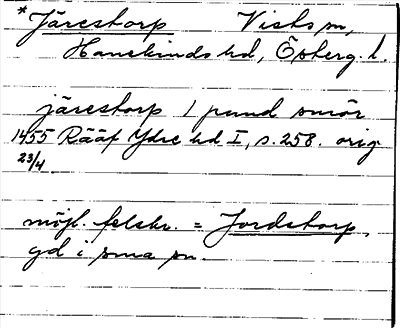 *Järestorp Vists sn,
Hanekinds hd, Österg. l.
järestorp 1 pund smör
1455 Rääf Ydre hd I, s. 258. orig
23/4
möjl. felskr. = Jordstorp,
gd i sma sn.